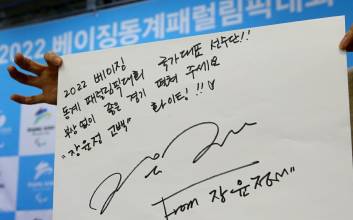 2022 베이징동계패럴림픽대회
2022 베이징
동계 패럴림픽대회 국가대표 선수단!!
부상 없이 좋은 경기 펼쳐 주세요
"장윤정 고백" 화이팅!!!
From 장윤정